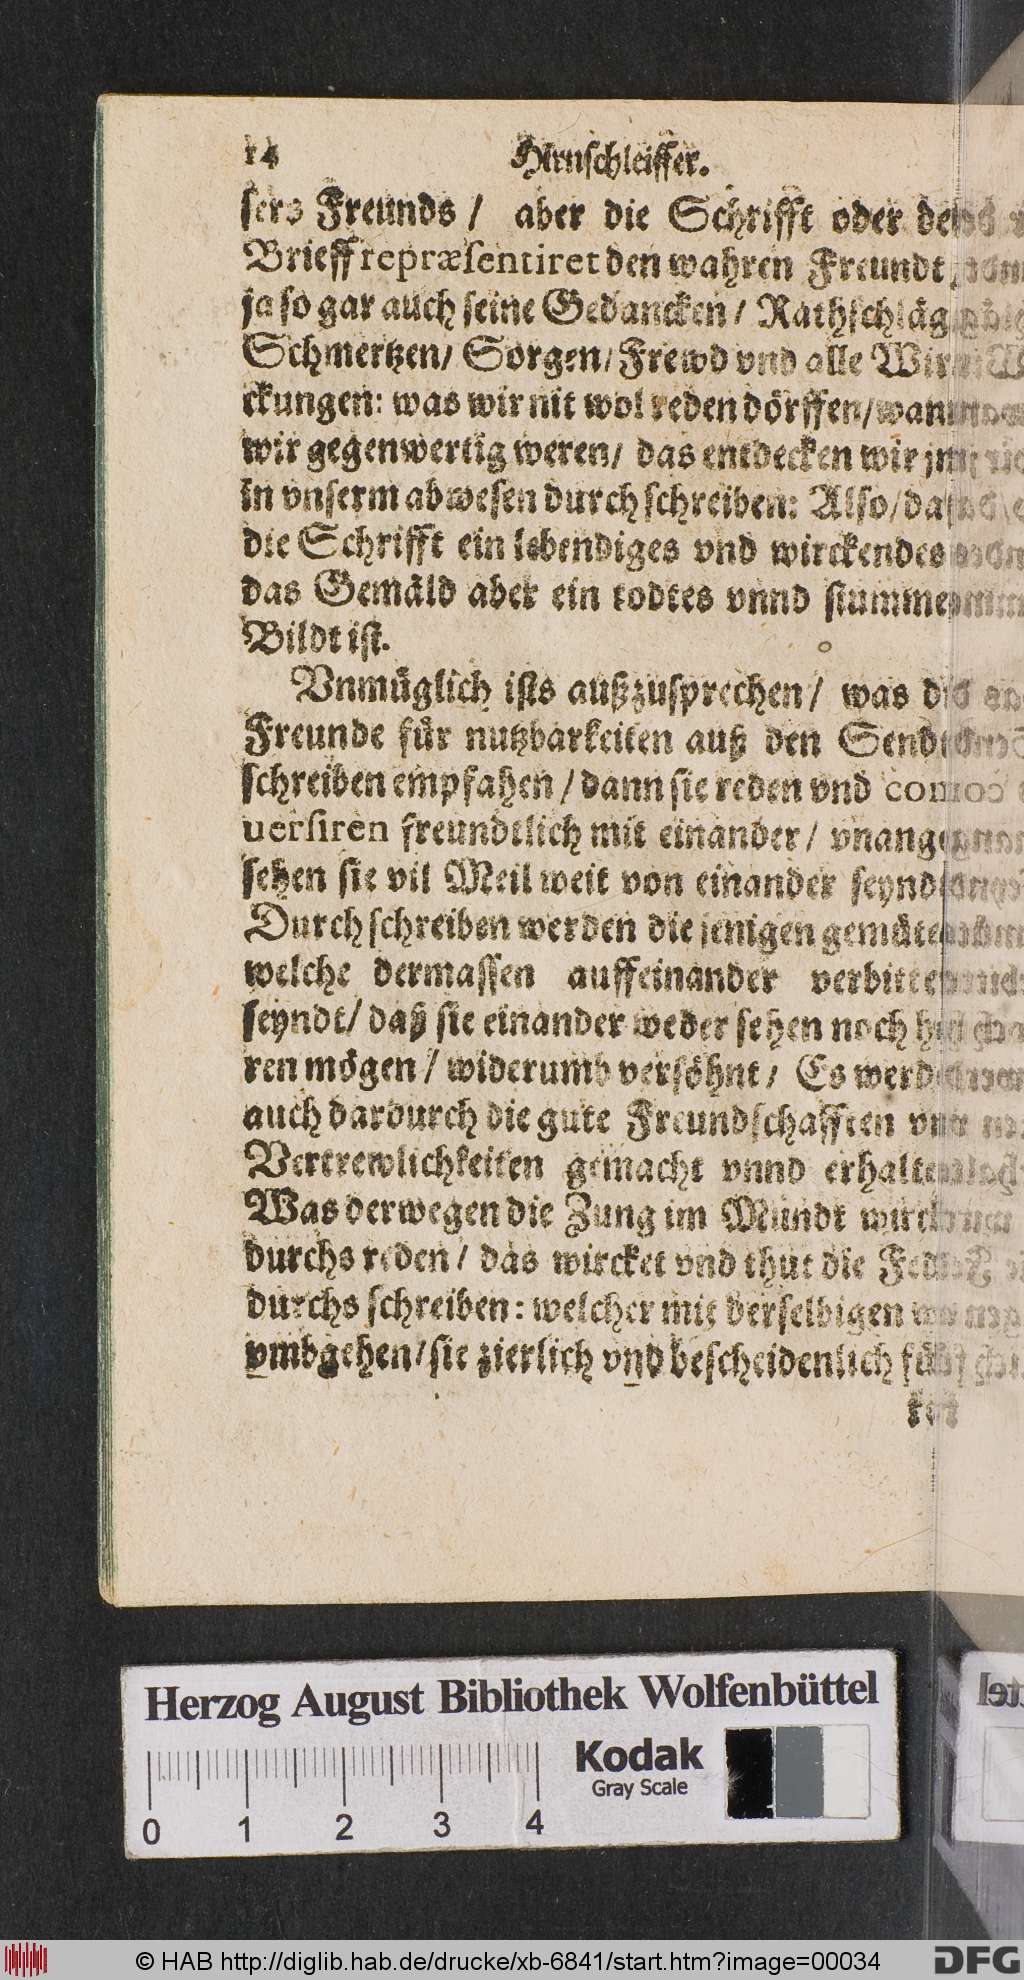 14 Hirnschleiffer.
sers Freunds / aber die Schrifft oder
Brieff repræsentiret den wahren Freundt
ja so gar auch seine Gedancken / Rathschläg
Schmertzen / Sorgen / Frewd vnd alle Wir
ckungen: was wir nit wol reden dörffen / wann
wir gegenwertig weren / das entdecken wir jm
in vnserm abwesen durch schreiben: Also / daß
die Schrifft ein lebendiges vnd wirckendes
das Gemäld aber ein todtes vnnd stummes
Bildt ist.
Vnmüglich ists außzusprechen / was die
Freunde für nutzbarkeiten auß den Sendt
schreiben empfahen / dann sie reden vnd con
uersiren freundtlich mit einander / vnange
sehen sie vil Meil weit von einander seynd
Durch schreiben werden die jenigen gemüter
welche dermassen auffeinander verbittert
seyndt / daß sie einander weder sehen noch hö
ren mögen / widerumb versöhnt / Es werden
auch dardurch die gute Freundschafften vnd
Vertrewlichkeiten gemacht vnnd erhalten
Was derwegen die Zung im Mundt wircket
durchs reden / das wircket vnd thut die Feder
durchs schreiben: welcher mit derselbigen
vmbgehen / sie zierlich vnd bescheidenlich
Herzog August Bibliothek Wolfenbüttel
Kodak
Gray Scale
0 1 2 3 4
© HAB http://diglib.hab.de/drucke/xb-6841/start.htm?image=00034
DFG